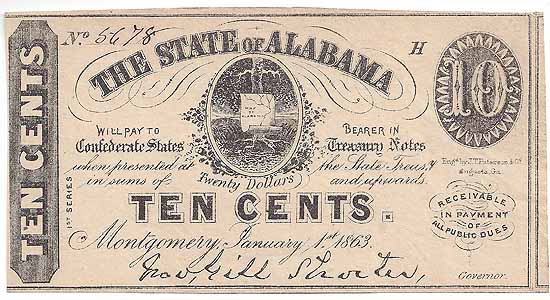 No 5678
THE STATE OF ALABAMA
H
10
TEN CENTS
WILL PAY TO BEARER IN
Confederate States Treasury Notes
when presented at the State Treasy
in sums of Twenty Dollars and upwards.
1ST SERIES
TEN CENTS.
Montgomery, January 1st 1863.
Engd by J.T. Paterson & Co
Augusta, Ga.
RECEIVABLE
IN PAYMENT
OF
ALL PUBLIC DUES
Jno. Gill Shorter,
Governor.